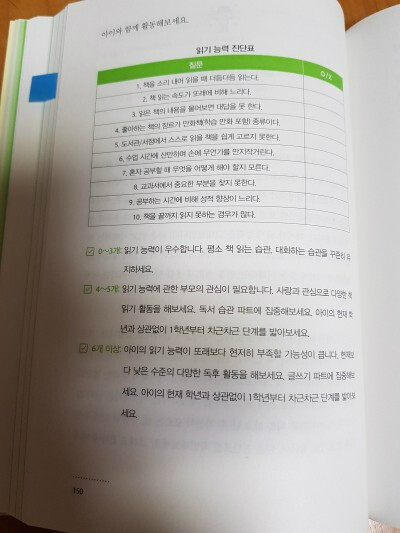 아이와 함께 활동해보세요.
읽기 능력 진단표
질문 O / X
1. 책을 소리 내어 읽을 때 더듬더듬 읽는다.
2. 책 읽는 속도가 또래에 비해 느리다.
3. 읽은 책의 내용을 물어보면 대답을 못 한다.
4. 좋아하는 책의 장르가 만화책(학습 만화 포함) 종류이다.
5. 도서관/서점에서 스스로 읽을 책을 쉽게 고르지 못한다.
6. 수업 시간에 산만하며 손에 무언가를 만지작거린다.
7. 혼자 공부할 때 무엇을 어떻게 해야 할지 모른다.
8. 교과서에서 중요한 부분을 찾지 못한다.
9. 공부하는 시간에 비해 성적 향상이 느리다.
10. 책을 끝까지 읽지 못하는 경우가 많다.
0~3개: 읽기 능력이 우수합니다. 평소 책 읽는 습관, 대화하는 습관을 꾸준히
지하세요.
4~5개: 읽기 능력에 관한 부모의 관심이 필요합니다. 사랑과 관심으로 다양한
읽기 활동을 해보세요. 독서 습관 파트에 집중해보세요. 아이의 현재 학
년과 상관없이 1학년부터 차근차근 단계를 밟아보세요.
6개 이상: 아이의 읽기 능력이 또래보다 현저히 부족할 가능성이 큽니다. 현재보
다 낮은 수준의 다양한 독후 활동을 해보세요. 글쓰기 파트에 집중해보
세요. 아이의 현재 학년과 상관없이 1학년부터 차근차근 단계를 밟아보
세요.
150